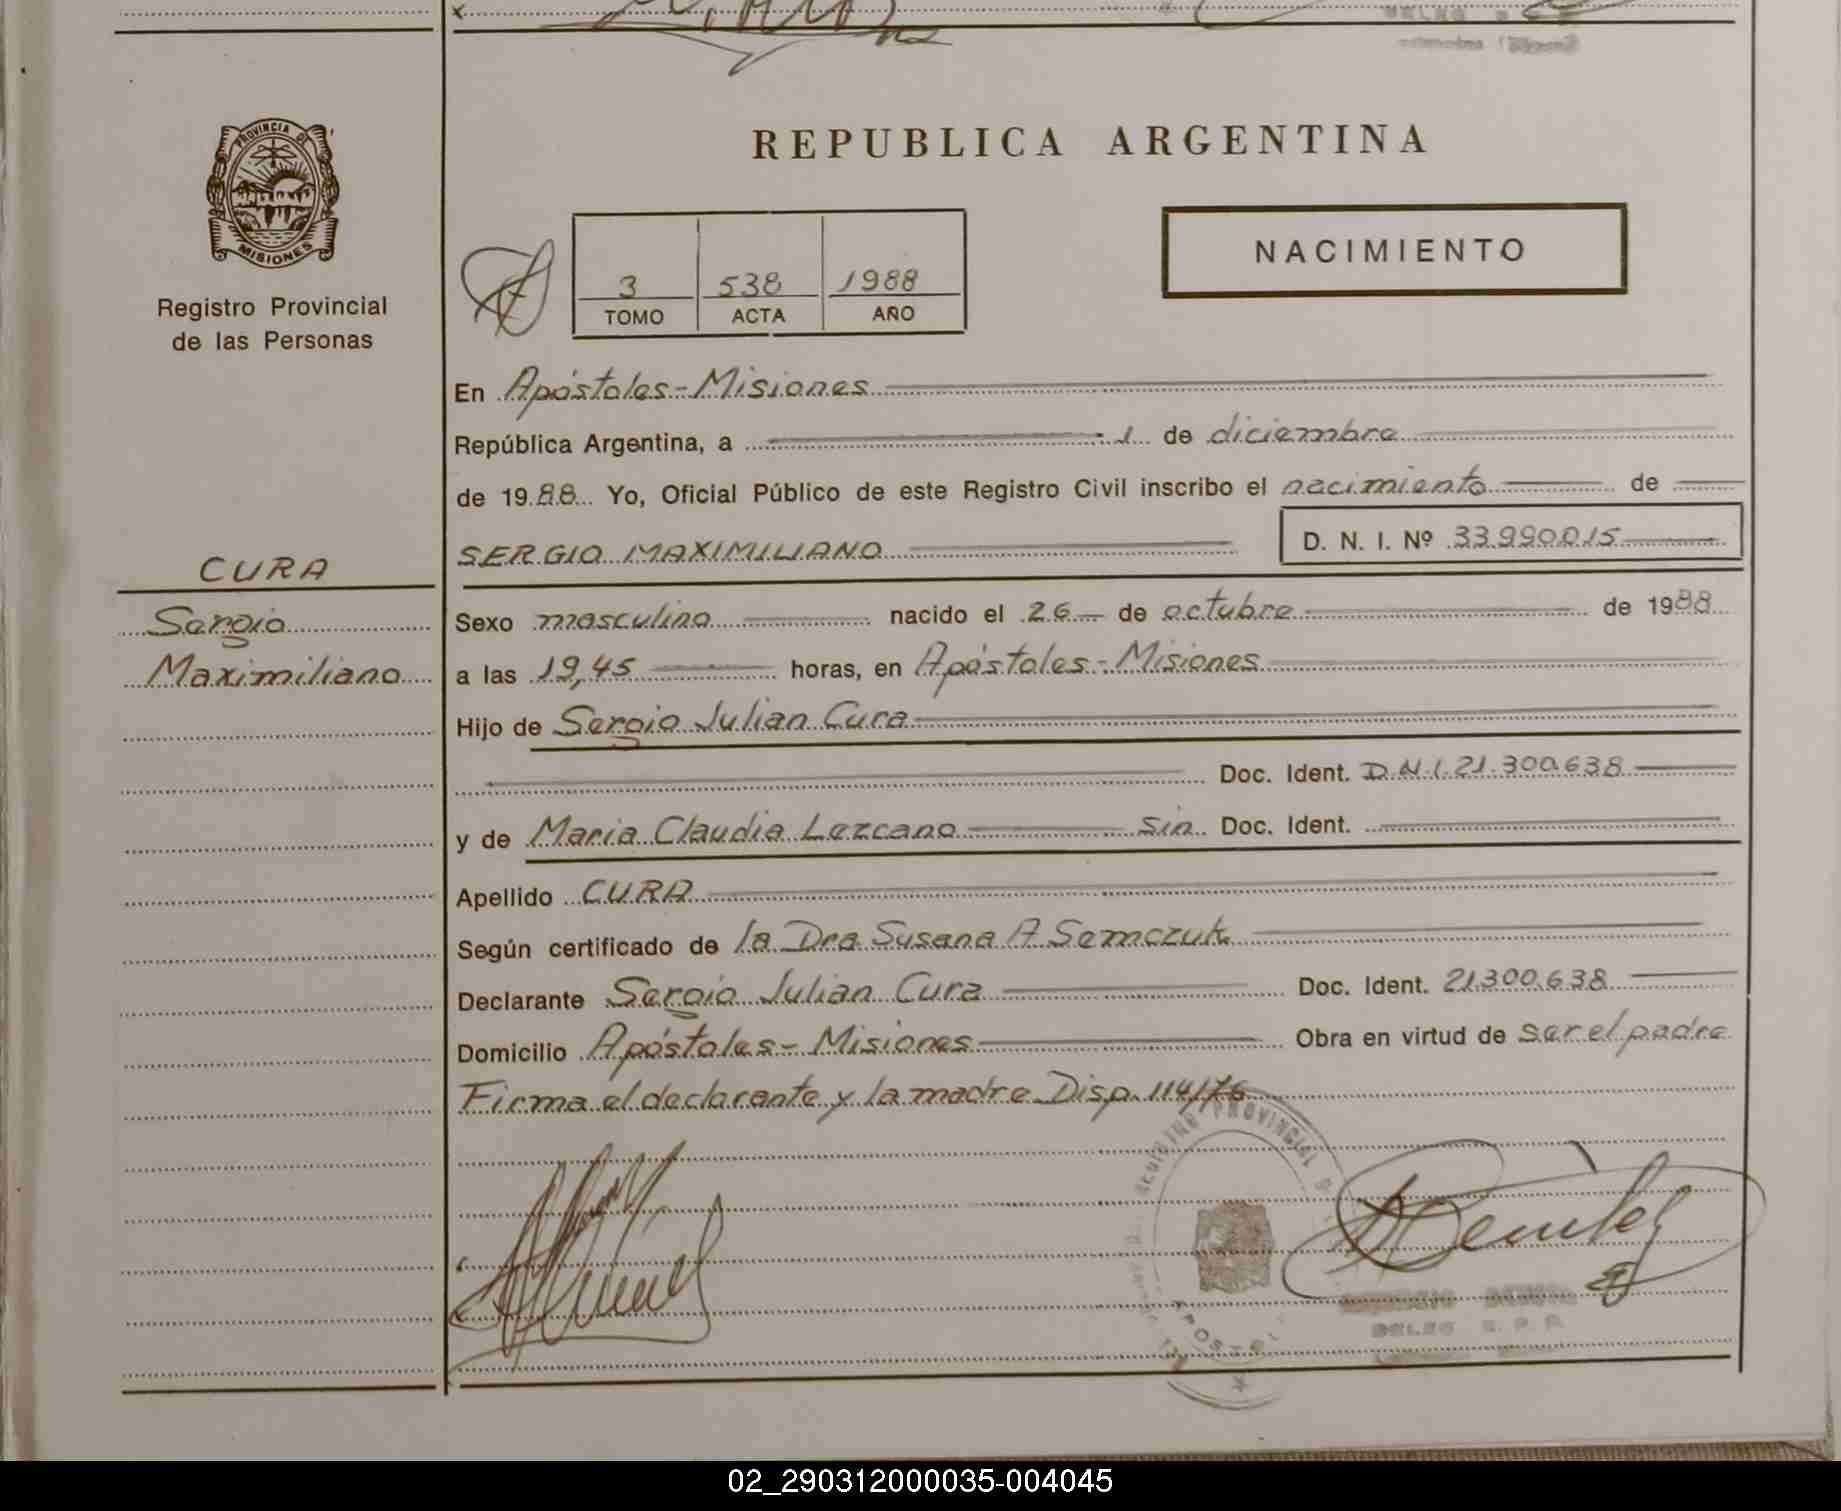 PROVINCIA DE
MISIONES
Registro Provincial
de las Personas
REPUBLICA ARGENTINA
NACIMIENTO
3 538 1988
TOMO ACTA AÑO
En Apóstoles-Misiones
República Argentina, a 1 de diciembre
de 1988 Yo, Oficial Público de este Registro Civil inscribo el nacimiento de
SERGIO MAXIMILIANO D. N. I. Nº 33.990.015
CURA
Sergio
Maximiliano
Sexo masculino nacido el 26 de octubre de 1988
a las 19,45 horas, en Apóstoles-Misiones
Hijo de Sergio Julian Cura
Doc. Ident. D.N.I. 21.300.638
y de Maria Claudia Lezcano sin Doc. Ident.
Apellido CURA
Según certificado de la Dra Susana A Semczuk
Declarante Sergio Julian Cura Doc. Ident. 21.300.638
Domicilio Apóstoles-Misiones Obra en virtud de ser el padre
Firma el declarante y la madre Disp. 114/76
PROVINCIAL
02_290312000035-004045